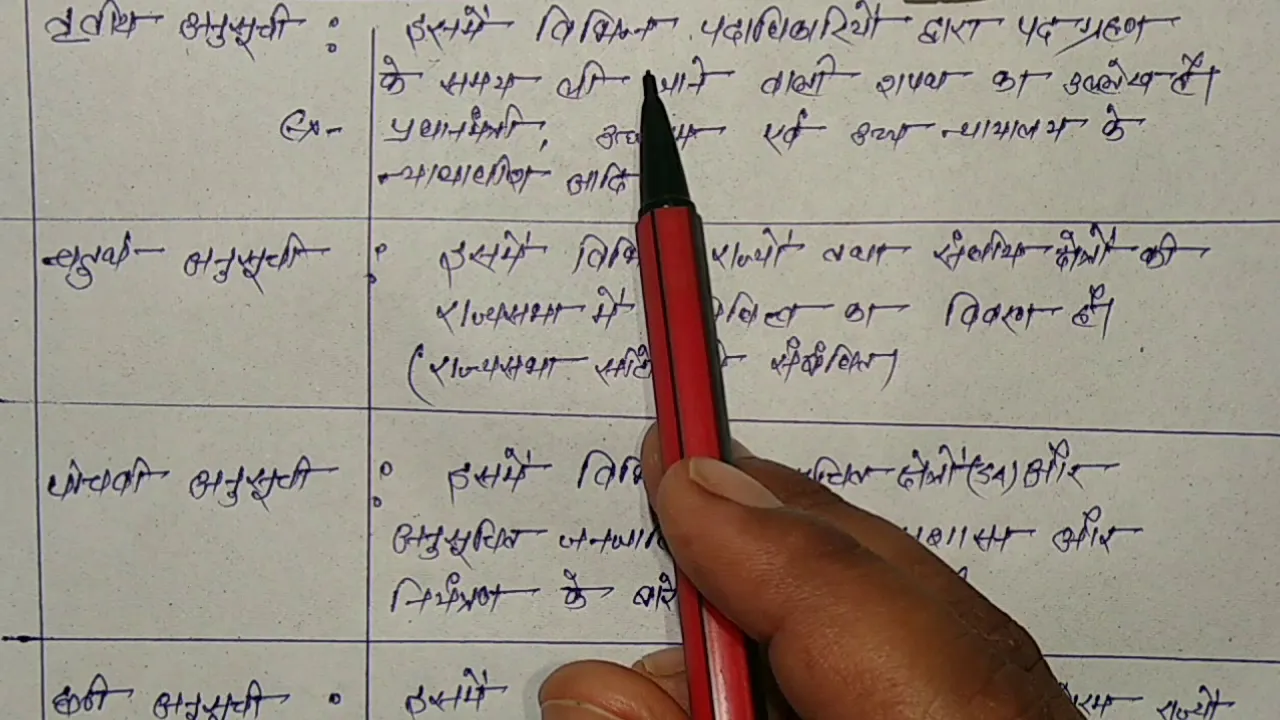 तृतीय अनुसूची : इसमें विभिन्न पदाधिकारियों द्वारा पद ग्रहण
के समय ली जाने वाली शपथ का उल्लेख है।
Ex- प्रधानमंत्री, एवं उच्च न्यायालय के
न्यायाधीश आदि
चतुर्थ अनुसूची : इसमें राज्यों तथा संघीय क्षेत्रों की
राज्यसभा में का विवरण है।
(राज्यसभा संबंधित)
पांचवी अनुसूची : इसमें क्षेत्रों (SA) और
अनुसूचित और
नियंत्रण के बारे
छठी अनुसूची : इसमें राज्यों